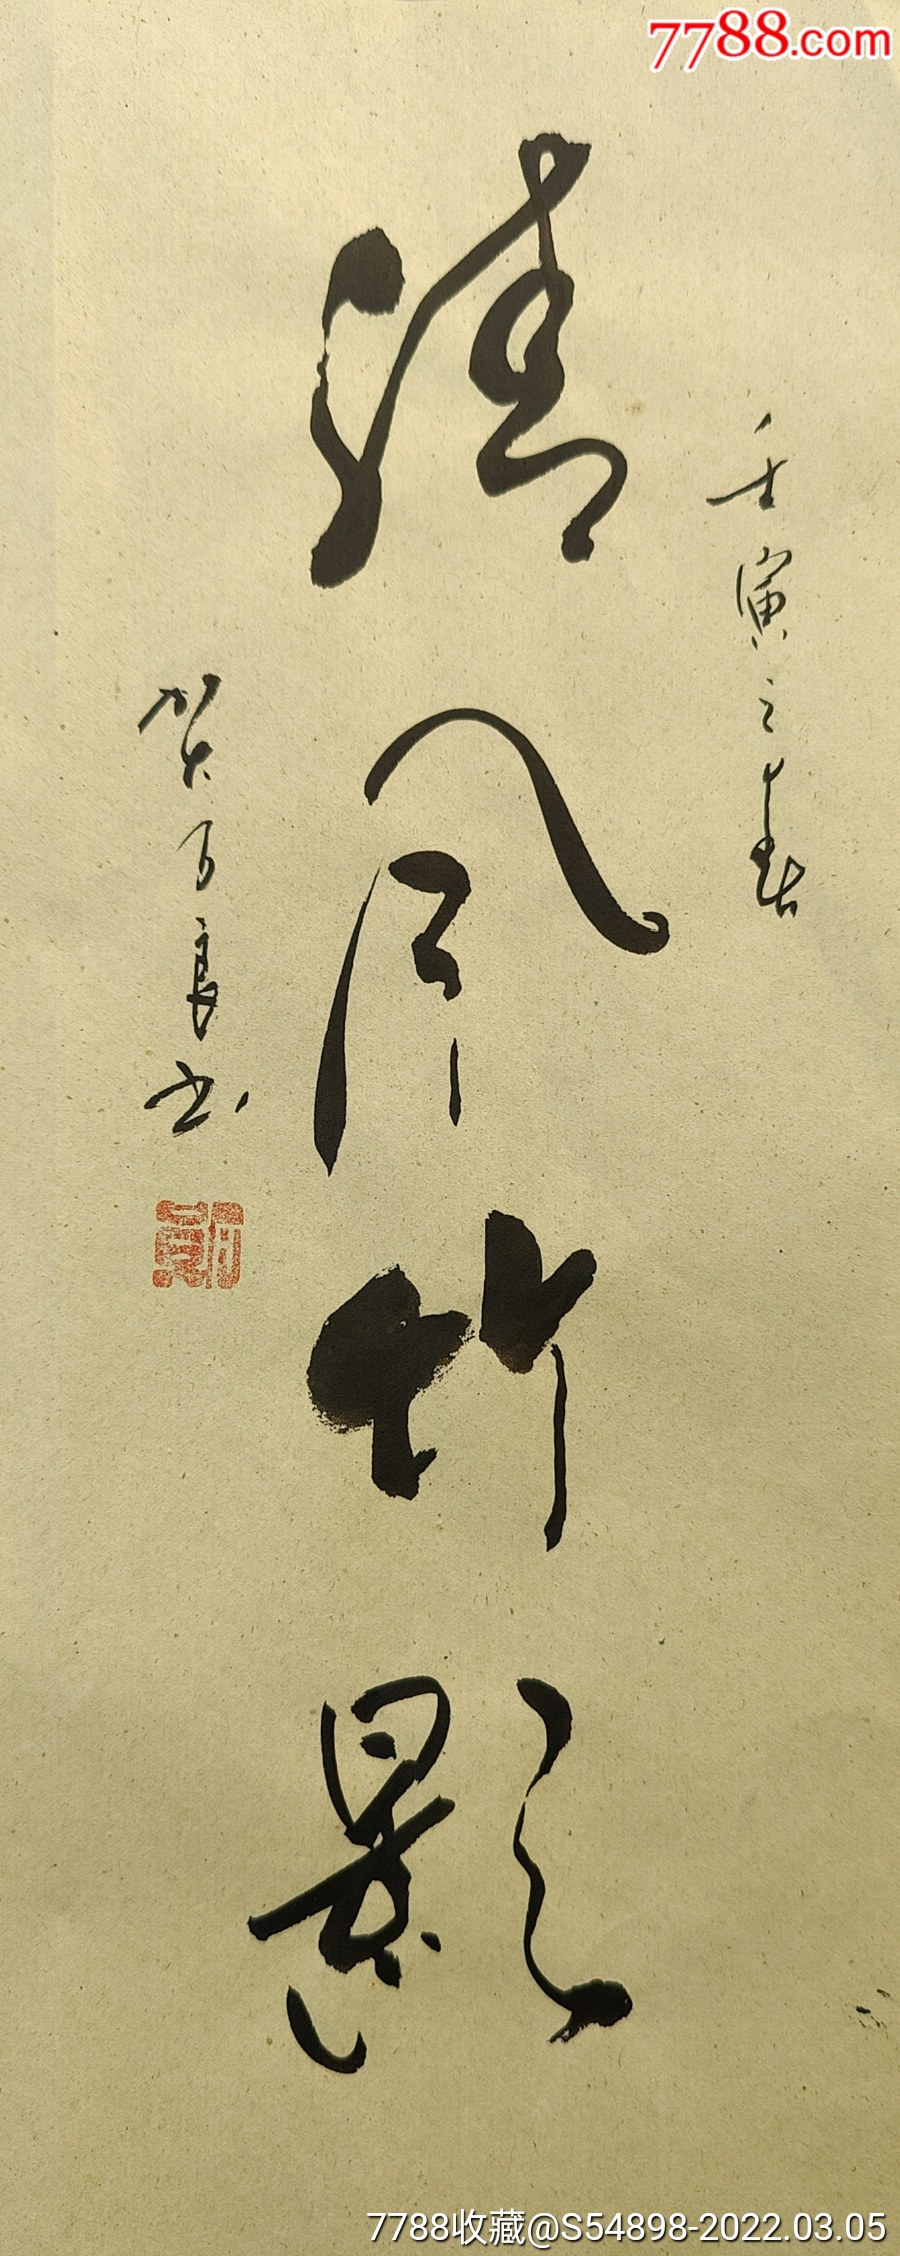 7788.com
壬寅之春
清风竹影
贺百良书
7788收藏@S54898-2022.03.05